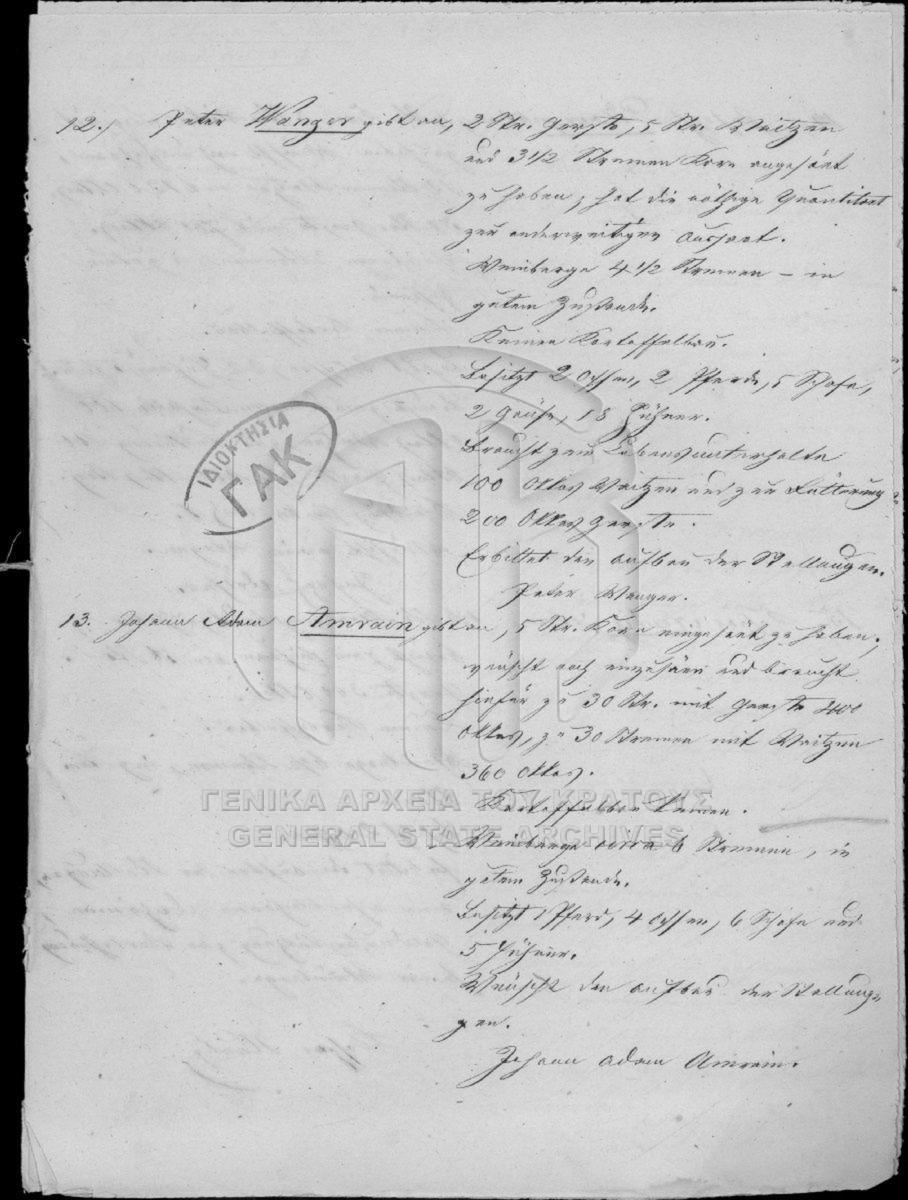 12.) Peter Wanger gibt an, 2 Str. Gerste, 5 Str. Waitzen
und 3 1/2 Stremen Korn angesäet
zu haben; hat die nöthige Quantitaet
zur anderweitigen Aussaat.
Weinberge 4 1/2 Stremen – in
gutem Zustande.
Keinen Kartoffelbau.
Besitzt 2 Ochsen, 2 Pferde, 5 Schafe,
2 Gänse, 18 Hühner.
Braucht zum Lebensunterhalte
100 Okkas Waitzen und zur Fütterung
200 Okkas Gerste.
Erbittet den Aufbau der Stallungen.
Peter Wanger.
13. Johann Adam Amrain gibt an, 5 Str. Korn eingesäet zu haben,
wünscht noch einzusäen und braucht
hiefür zu 30 Str. mit Gerste 400
Okkas, zu 30 Stremen mit Waitzen
360 Okkas.
Kartoffelbau keinen.
Weinberge circa 6 Stremen, in
gutem Zustande.
Besitzt 1 Pferd, 4 Ochsen, 6 Schafe und
5 Hühner.
Wünscht den Aufbau der Stallun-
gen.
Johann Adam Amrain.
ΙΔΙΟΚΤΗΣΙΑ
ΓΑΚ
ΓΕΝΙΚΑ ΑΡΧΕΙΑ ΤΟΥ ΚΡΑΤΟΥΣ
GENERAL STATE ARCHIVES